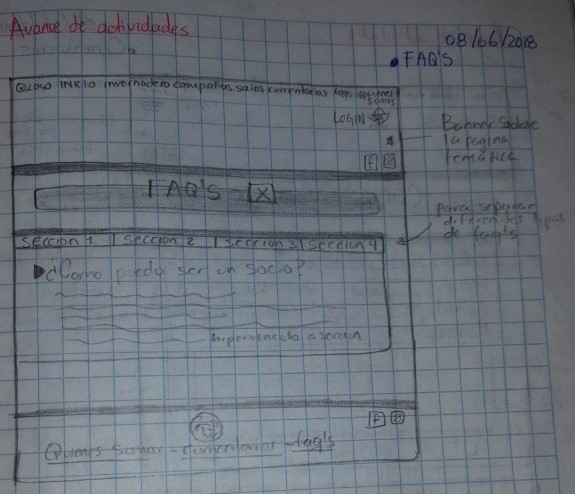 Avance de actividades
08/06/2018
• FAQ'S
LOGO INICIO invernadero compañias socios comentarios faqs quienes
somos
LOGIN
Banner Sobre
la pagina
temática
f
FAQ'S X
para separar
diferentes tipos
de faq's
Sección 1 Sección 2 Sección 3 Sección 4
¿Como puedo ser un socio?
hipervinculo a sección
f
Quienes somos - comentarios - faq's